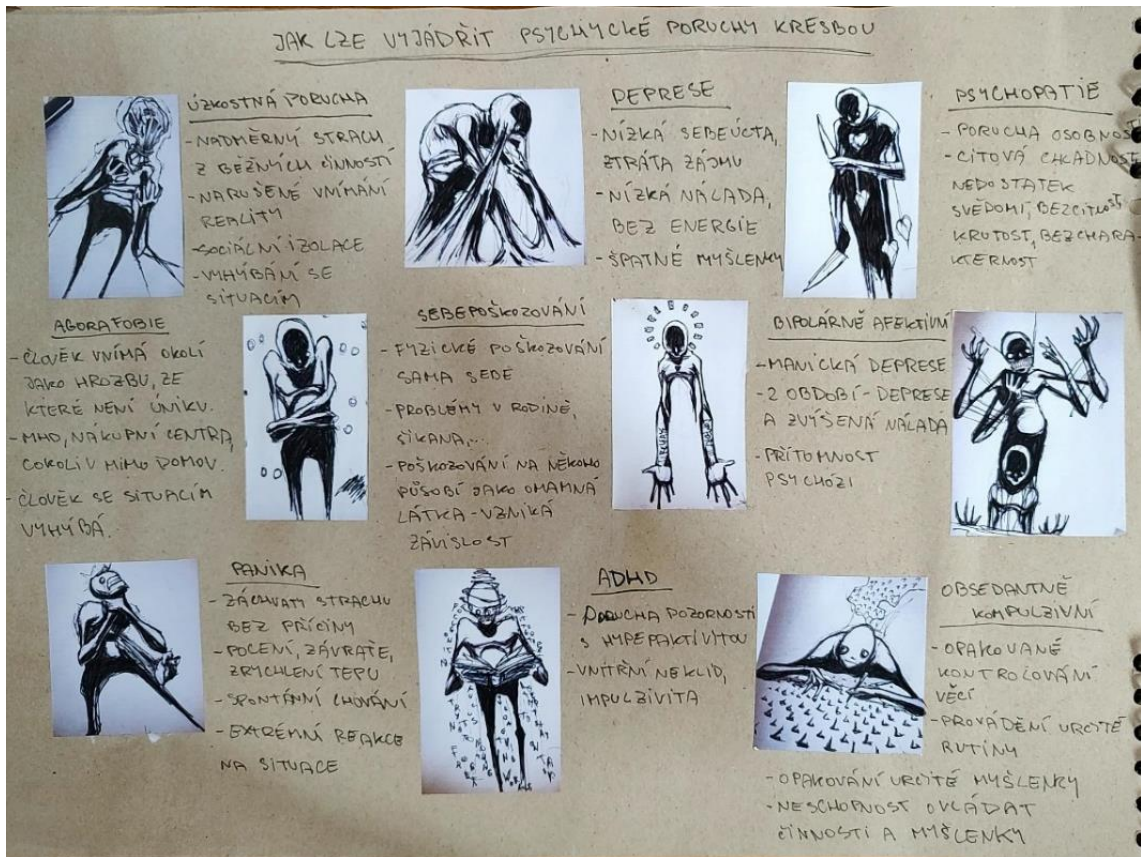 JAK LZE VYJÁDŘIT PSYCHYCKÉ PORUCHY KRESBOU
ÚZKOSTNÁ PORUCHA
- NADMĚRNÝ STRACH
Z BĚŽNÝCH ČINNOSTÍ
- NARUŠENÉ VNÍMÁNÍ
REALITY
- SOCIÁLNÍ IZOLACE
- VYHÝBÁNÍ SE
SITUACÍM
DEPRESE
- NÍZKÁ SEBEÚCTA,
ZTRÁTA ZÁJMU
- NÍZKÁ NÁLADA,
BEZ ENERGIE
- ŠPATNÉ MYŠLENKY
PSYCHOPATIE
- PORUCHA OSOBNOST
- CITOVÁ CHLADNOST
NEDOSTATEK
SVĚDOMÍ, BEZCITNOST
KRUTOST, BEZCHARA-
KTERNOST
AGORAFOBIE
- ČLOVĚK VNÍMÁ OKOLÍ
JAKO HROZBU, ZE
KTERÉ NENÍ ÚNIKU.
- MHD, NÁKUPNÍ CENTRA,
COKOLIV MIMO DOMOV.
- ČLOVĚK SE SITUACÍM
VYHÝBÁ.
SEBEPOŠKOZOVÁNÍ
- FYZICKÉ POŠKOZOVÁNÍ
SAMA SEBE
- PROBLÉMY V RODINĚ,
ŠIKANA,...
- POŠKOZOVÁNÍ NA NĚKOHO
PŮSOBÍ JAKO OMAMNÁ
LÁTKA - VZNIKÁ
ZÁVISLOST
BIPOLÁRNĚ AFEKTIVNÍ
- MANICKÁ DEPRESE
- 2 OBDOBÍ - DEPRESE
A ZVÝŠENÁ NÁLADA
- PŘÍTOMNOST
PSYCHÓZI
PANIKA
- ZÁCHVATY STRACHU
BEZ PŘÍČINY
- POCENÍ, ZÁVRATĚ,
ZRYCHLENÍ TEPU
- SPONTÁNNÍ CHOVÁNÍ
- EXTRÉMNÍ REAKCE
NA SITUACE
ADHD
- PORUCHA POZORNOSTI
S HYPERAKTIVITOU
- VNITŘNÍ NEKLID,
IMPULZIVITA
OBSEDANTNĚ
KOMPULZIVNÍ
- OPAKOVANÉ
KONTROLOVÁNÍ
VĚCÍ
- PROVÁDĚNÍ URČITÉ
RUTINY
- OPAKOVÁNÍ URČITÉ MYŠLENKY
- NESCHOPNOST OVLÁDAT
ČINNOSTI A MYŠLENKY